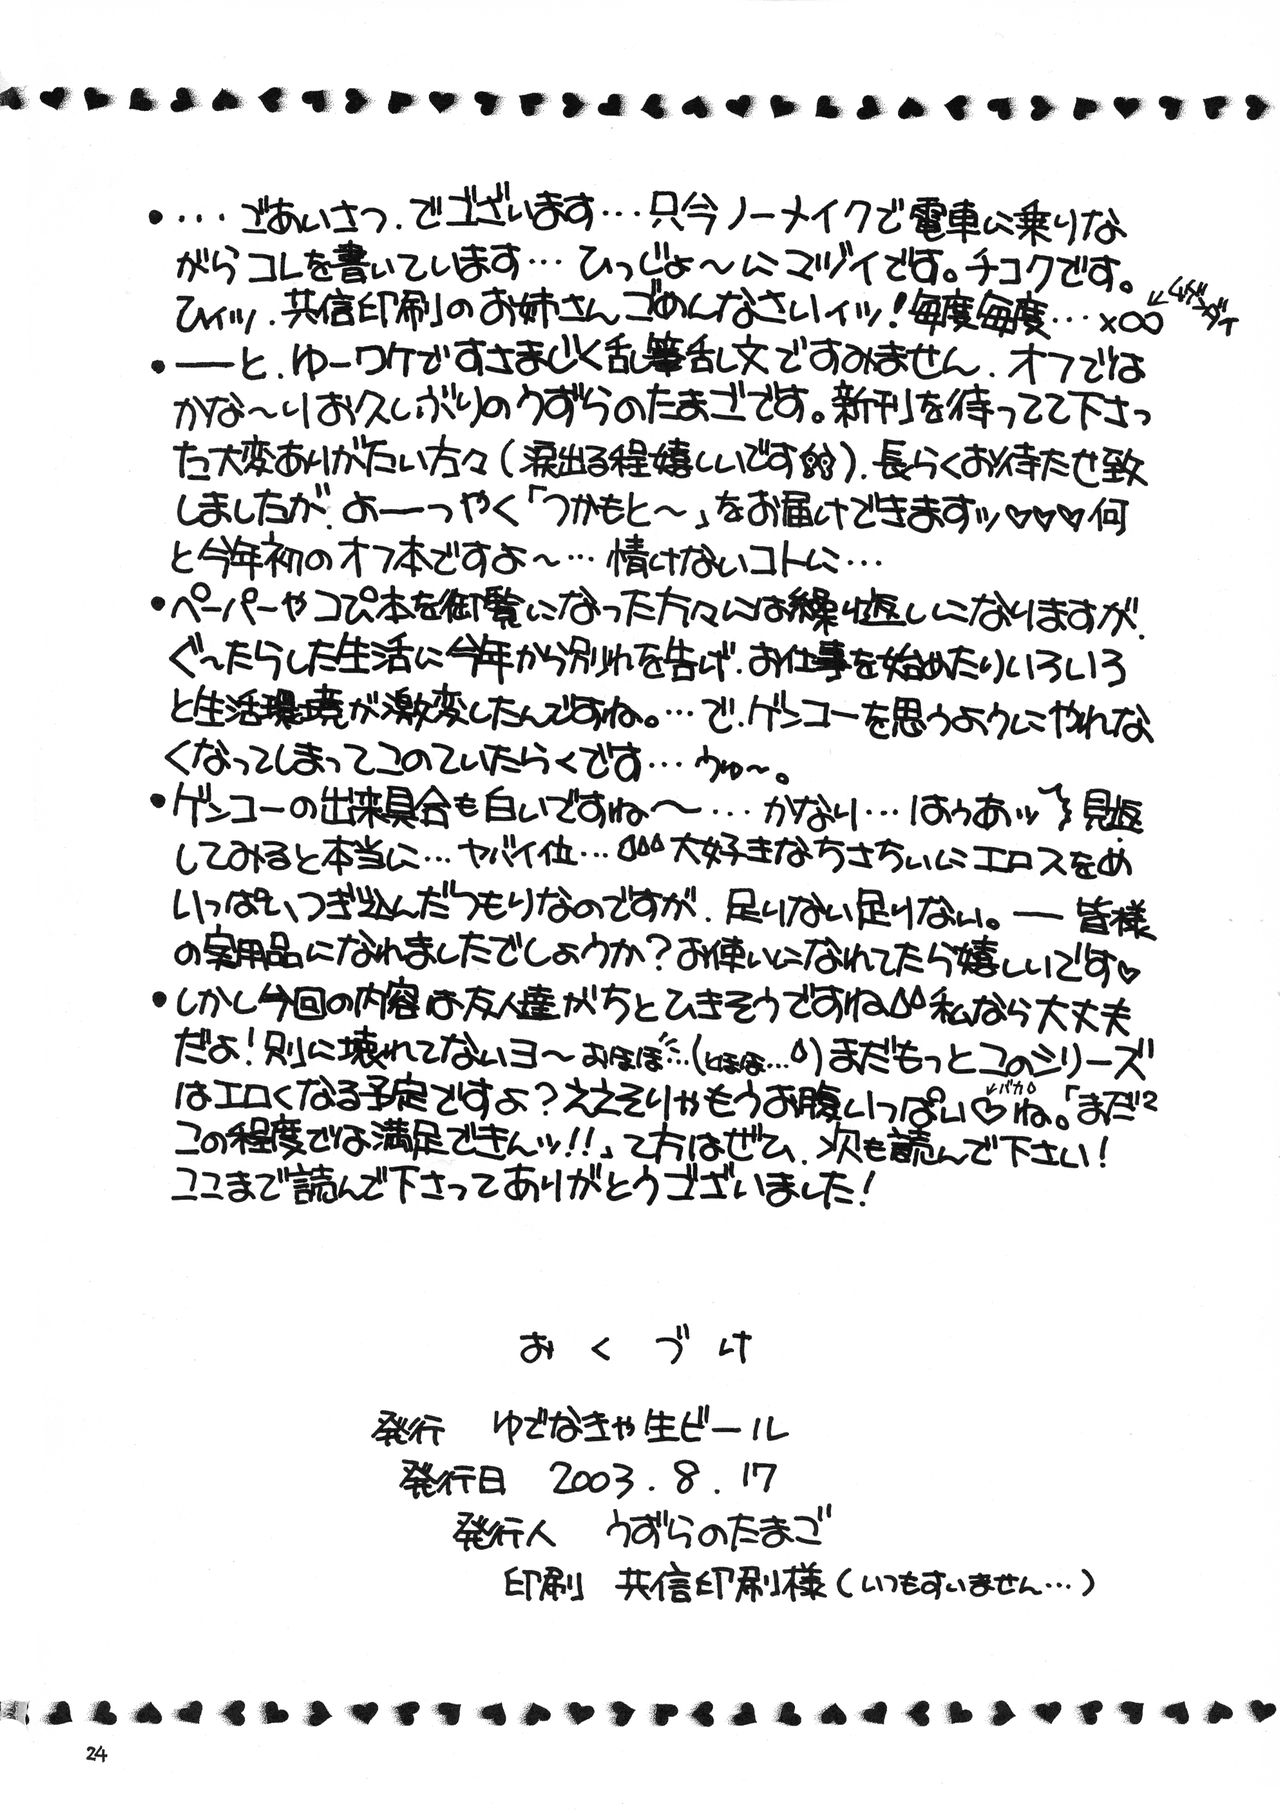 ・・・・ごあいさつ、でございます…只今ノーメイクで電車に乗りな
がらコレを書いています… ひっじょ〜にマヅイです。チコクです。
ひィッ、共信印刷のお姉さんごめんなさいィッ！毎度毎度…×∞ ←ムゲンダイ
・──と、ゆーワケですさまじく乱筆乱文ですみません、オフでは
かな〜りお久しぶりのうずらのたまごです。新刊を待ってて下さっ
た大変ありがたい方々（涙出る程嬉しいです）、長らくお待たせ致
しましたが、よーっやく「つかもと〜」をお届けできますッ♡♡♡何
と今年初のオフ本ですよ〜… 情けないコトに…
・ペーパーやコピ本を御覧になった方々には繰り返しになりますが、
ぐ〜たらした生活に今年から別れを告げ、お仕事を始めたりいろいろ
と生活環境が激変したんですね。…で、ゲンコーを思うようにやれな
くなってしまってこのていたらくです… うゅ〜。
・ゲンコーの出来具合も白いですね〜… かなり… はぅあッ 見返
してみると本当に… ヤバイ位… 大好きなちさちぃにエロスをめ
いっぱいつぎ込んだつもりなのですが、足りない足りない。── 皆様
の実用品になれましたでしょうか？お使いになれてたら嬉しいです♡
・しかし今回の内容は友人達がちとひきそうですね 私なら大丈夫
だよ！別に壊れてないヨ〜おほほ…（とほほ…）まだもっとこのシリーズ
はエロくなる予定ですよ？ええそりゃもうお腹いっぱい♡ ←バカ ね。「まだ2
この程度では満足できんッ!!」て方はぜひ、次も読んで下さい！
ここまで読んで下さってありがとうございました！
おくづけ
発行 ゆでなきゃ生ビール
発行日 2003.8.17
発行人 うずらのたまご
印刷 共信印刷様（いつもすいません…）
24